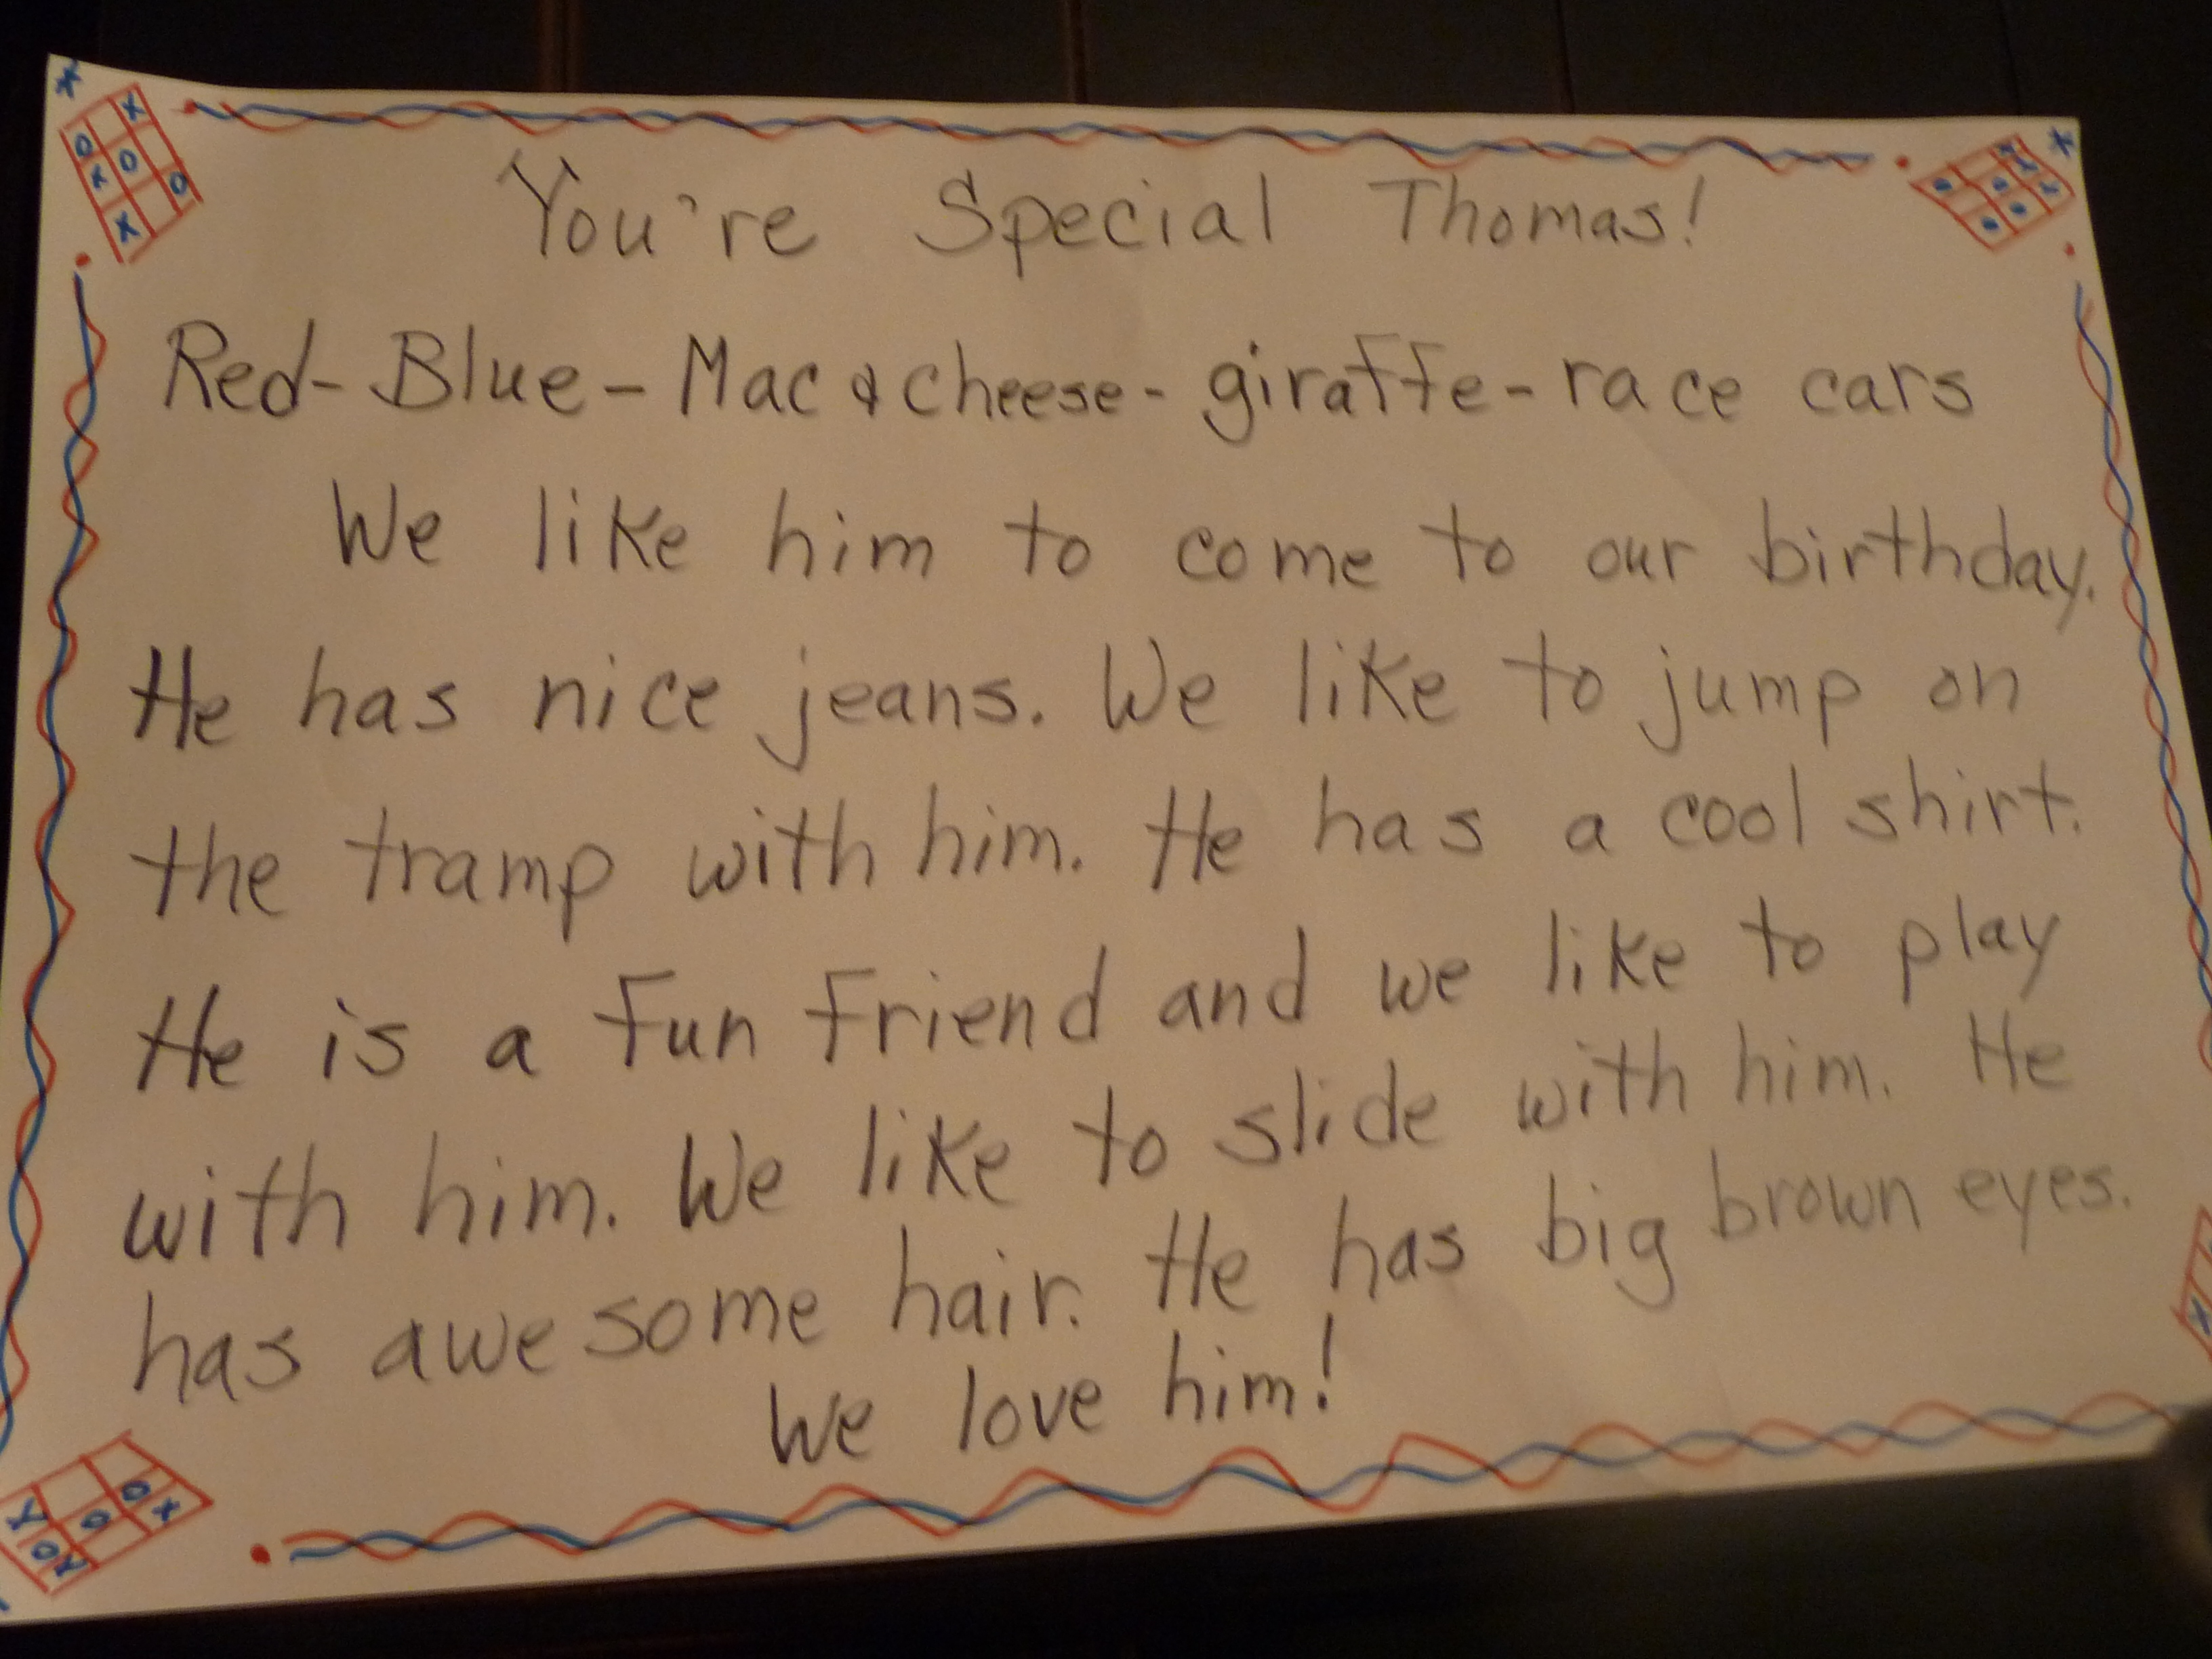 You're Special Thomas!
Red-Blue-Mac & cheese-giraffe-race cars
We like him to come to our birthday.
He has nice jeans. We like to jump on
the tramp with him. He has a cool shirt.
He is a fun friend and we like to play
with him. We like to slide with him. He
has awesome hair. He has big brown eyes.
We love him!